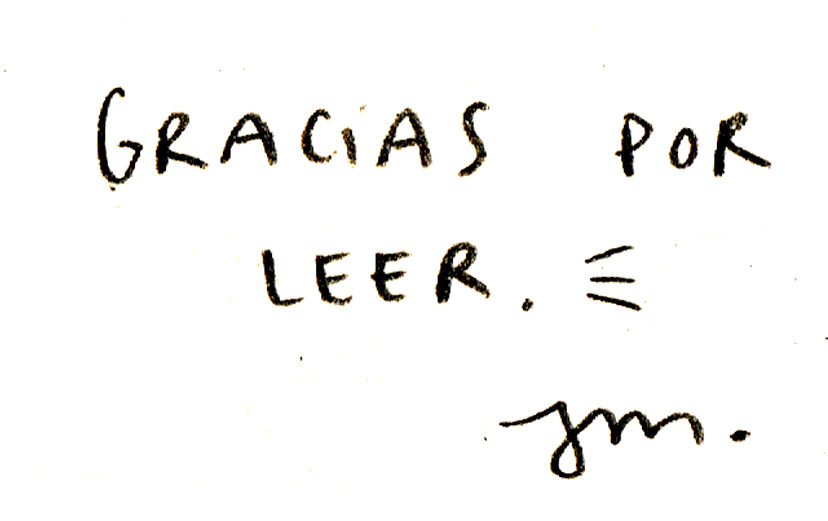 GRACIAS POR
LEER.
jm.